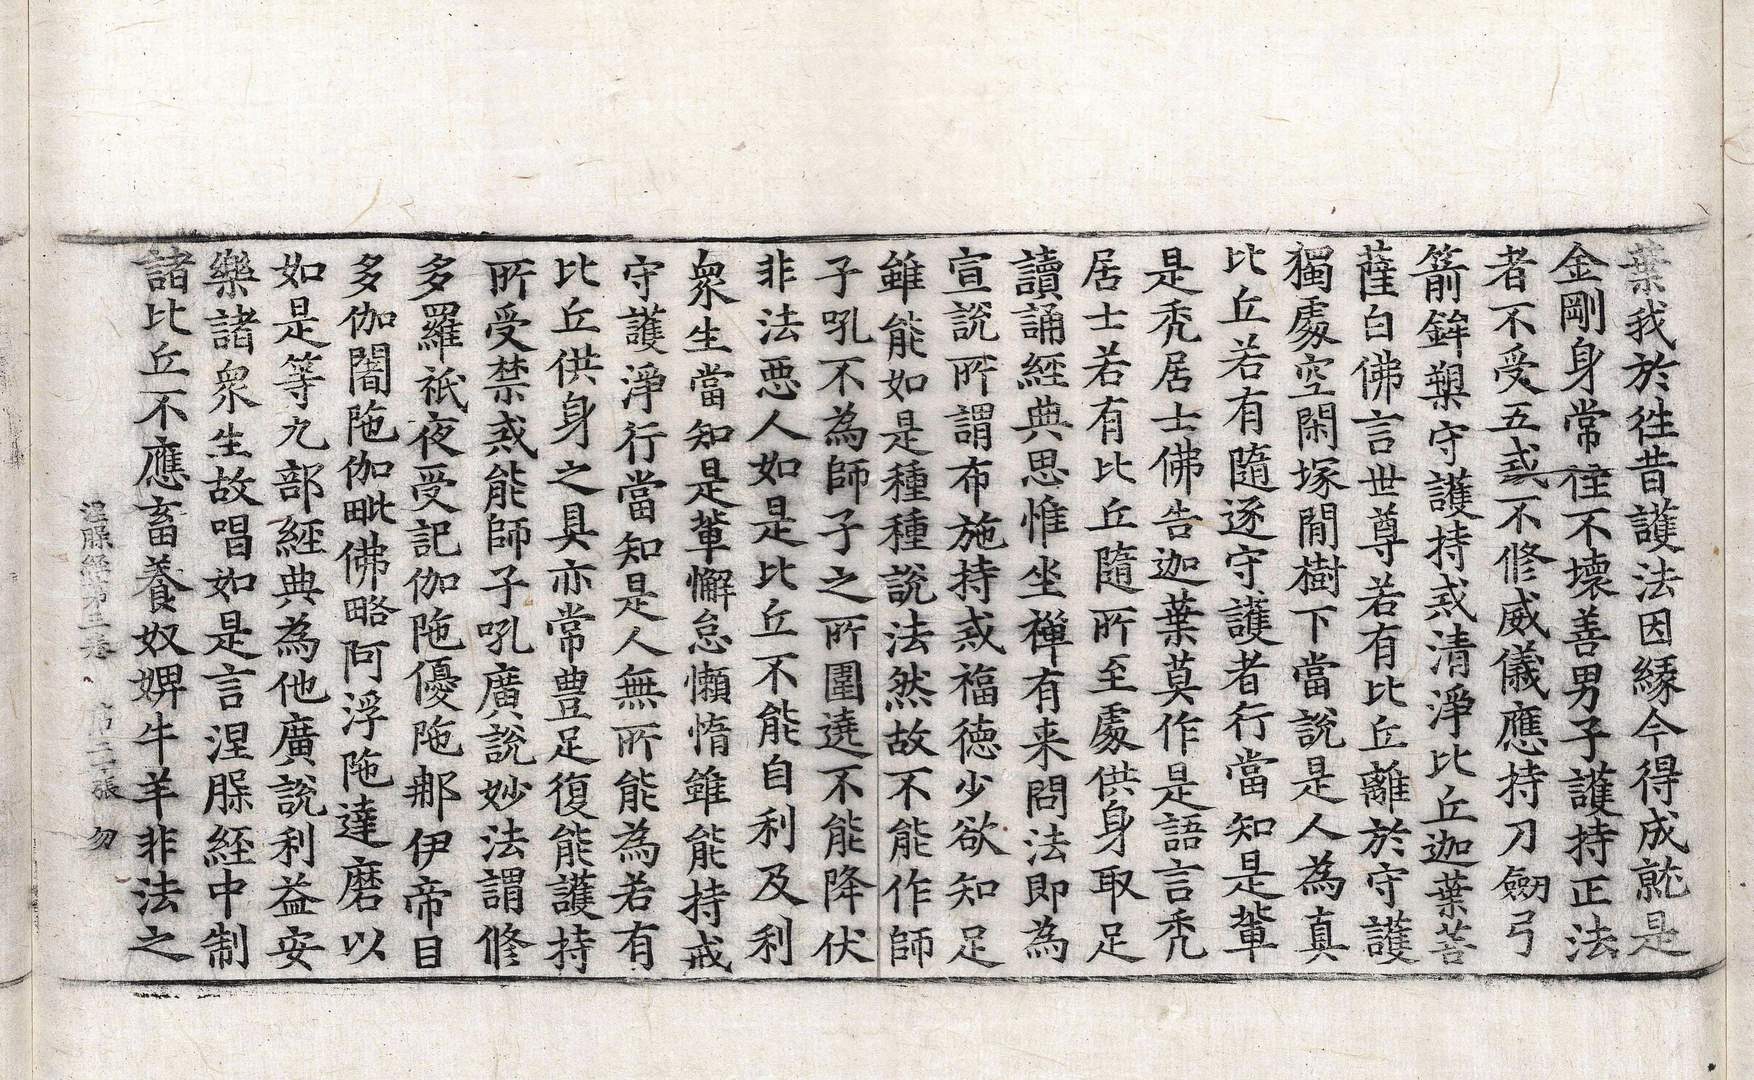 葉我於徃昔護法因緣今得成就是
金剛身常住不壞善男子護持正法
者不受五戒不修威儀應持刀劒弓
箭鉾槊守護持戒清淨比丘迦葉菩
薩白佛言世尊若有比丘離於守護
獨處空閑塚閒樹下當說是人為真
比丘若有隨逐守護者行當知是輩
是禿居士佛告迦葉莫作是語言禿
居士若有比丘隨所至處供身取足
讀誦經典思惟坐禪有来問法即為
宣說所謂布施持戒福徳少欲知足
雖能如是種種說法然故不能作師
子吼不為師子之所圍遶不能降伏
非法惡人如是比丘不能自利及利
衆生當知是輩懈怠懶惰雖能持戒
守護淨行當知是人無所能為若有
比丘供身之具亦常豊足復能護持
所受禁戒能師子吼廣說妙法謂修
多羅祇夜受記伽陁優陁那伊帝目
多伽闍陁伽毗佛略阿浮陁達磨以
如是等九部經典為他廣說利益安
樂諸衆生故唱如是言涅槃經中制
諸比丘不應畜養奴婢牛羊非法之
涅槃經第三卷 第二十張 勿